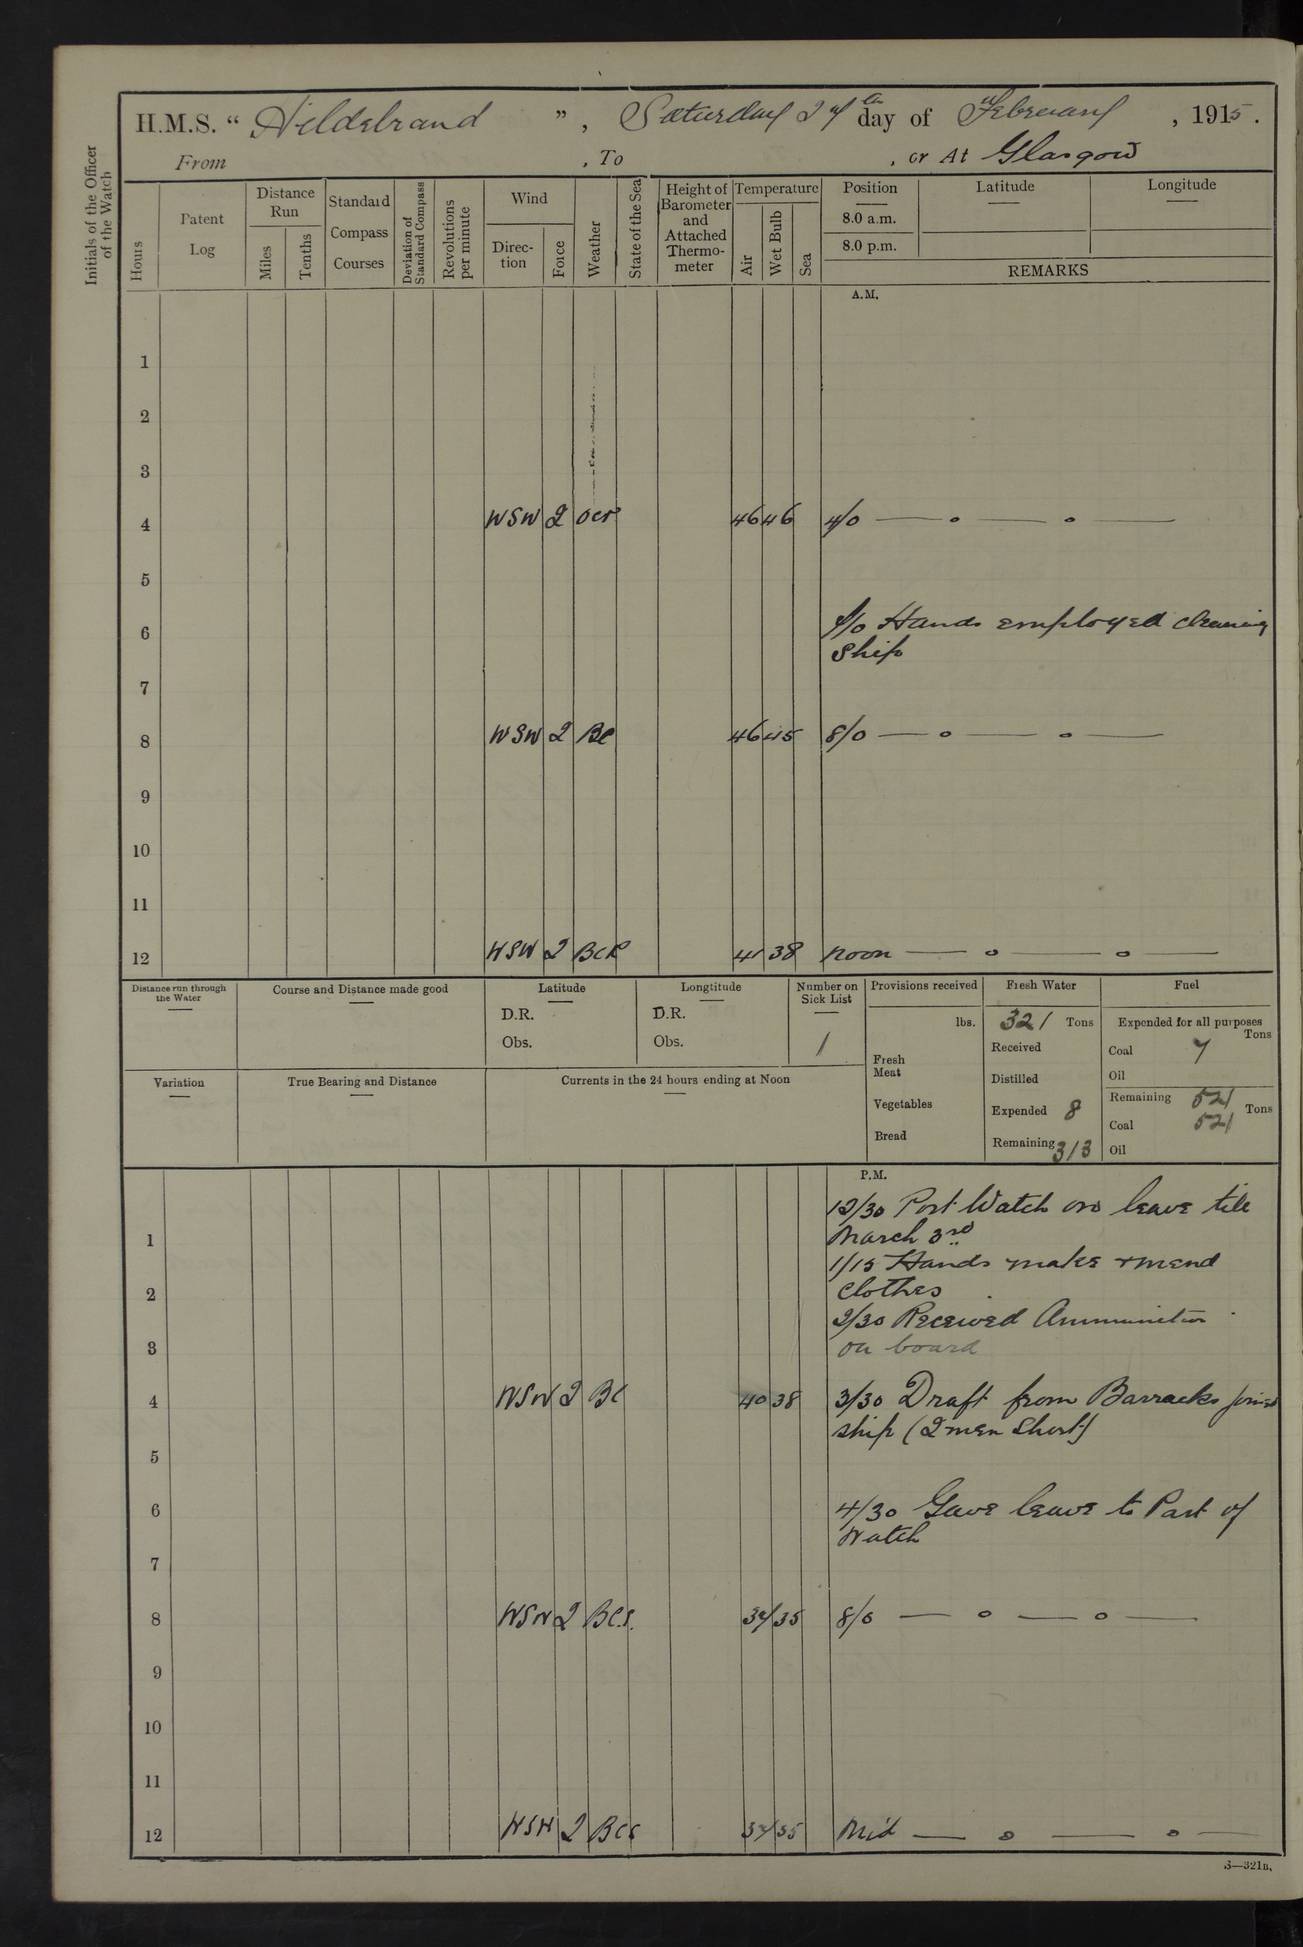 H.M.S. " Hildebrand ", Saturday 27th day of February, 1915.
From , To , or At Glasgow
Initials of the Officer of the Watch
Hours
Patent Log
Distance Run
Miles
Tenths
Standard Compass Courses
Deviation of Standard Compass
Revolutions per minute
Wind
Direc-tion
Force
Weather
State of the Sea
Height of Barometer and Attached Thermo-meter
Temperature
Air
Wet Bulb
Sea
Position
8.0 a.m.
8.0 p.m.
Latitude
Longitude
REMARKS
A.M.
1
2
3
4 WSW 2 ocr 46 46 4/0 — o — o —
5
6 Hands employed cleaning
Ship
7
8 WSW 2 BC 46 45 8/0 — o — o —
9
10
11
12 WSW 2 BCR 41 38 Noon — o — o —
Distance run through the Water
Course and Distance made good
Latitude
D.R.
Obs.
Longtitude
D.R.
Obs.
Number on Sick List
1
Provisions received
lbs.
Fresh Meat
Vegetables
Bread
Fresh Water
321 Tons
Received
Distilled
Expended 8
Remaining 313
Fuel
Expended for all purposes
Tons
Coal 7
Oil
Remaining 521
Tons
Coal 521
Oil
Variation
True Bearing and Distance
Currents in the 24 hours ending at Noon
P.M.
12/30 Port Watch on leave till
1 March 3rd
1/15 Hands make + mend
2 clothes
2/30 Received Ammunition
3 on board
4 WSW 2 BC 40 38 3/30 Draft from Barracks joined
ship (2 men short)
5
6 4/30 Gave leave to Part of
Watch
7
8 WSW 2 BC.S. 37 35 8/0 — o — o —
9
10
11
12 WSW 2 BCS 37 35 Mid — o — o —
S—321B.